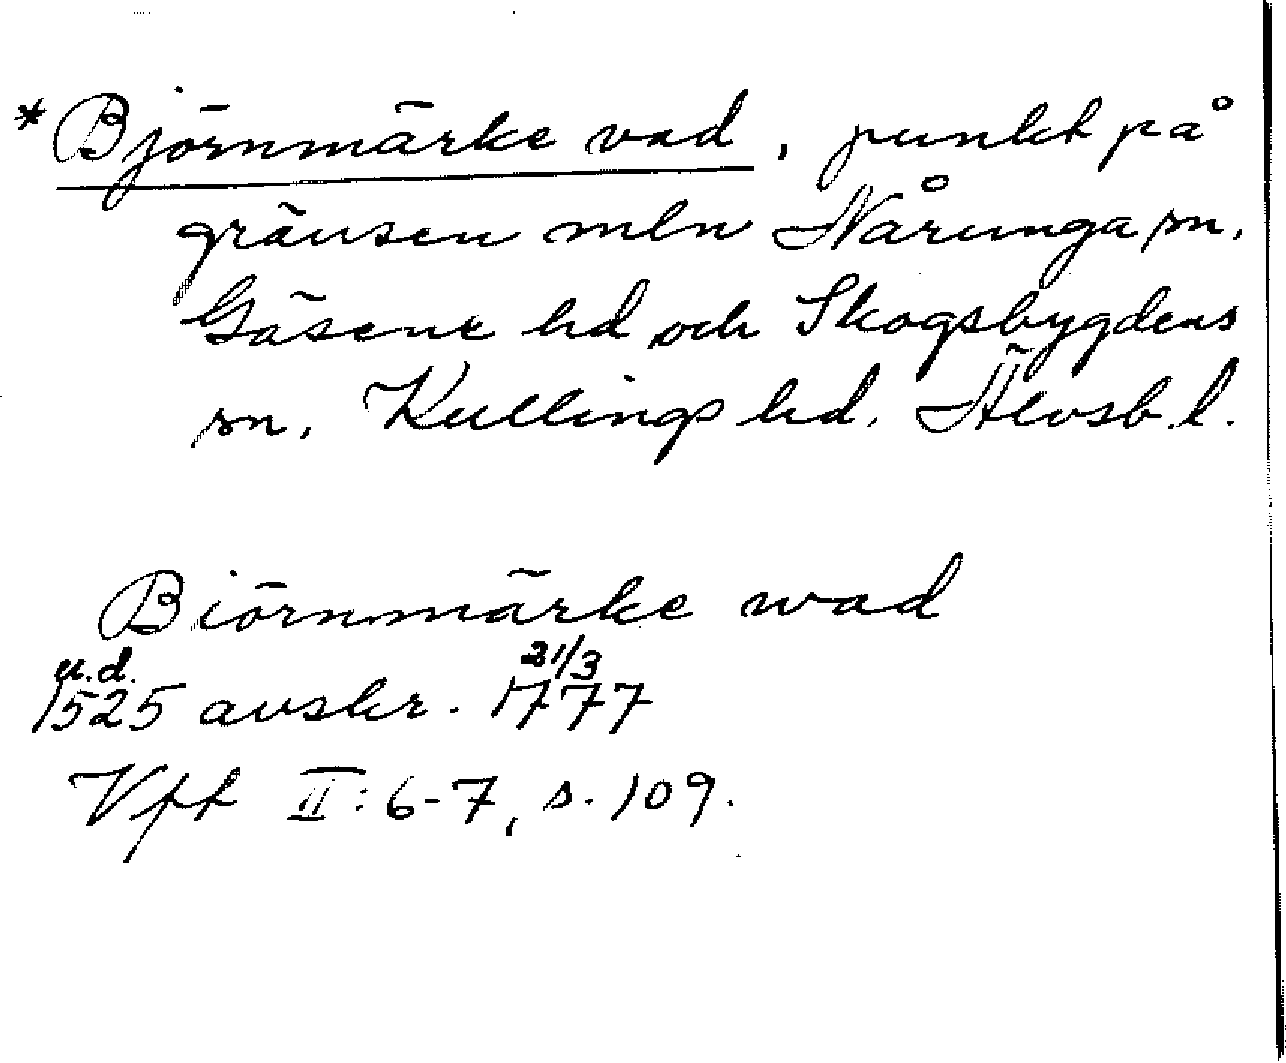 *Björnmärke vad, punkt på
gränsen mln Nårunga sn,
Gäsene hd och Skogsbygdens
sn, Kullings hd, Älvsb. l.
Biörnmärke wad
u.d. 21/3
1525 avskr. 1777
Vft II: 6-7, s. 109.